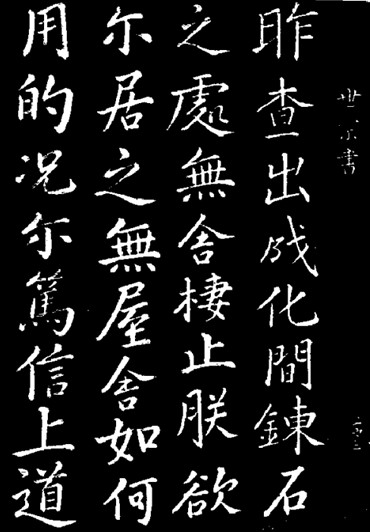 世宗書
昨查出成化間鍊石
之處無舍棲止朕欲
尒居之無屋舍如何
用的况尒篤信上道